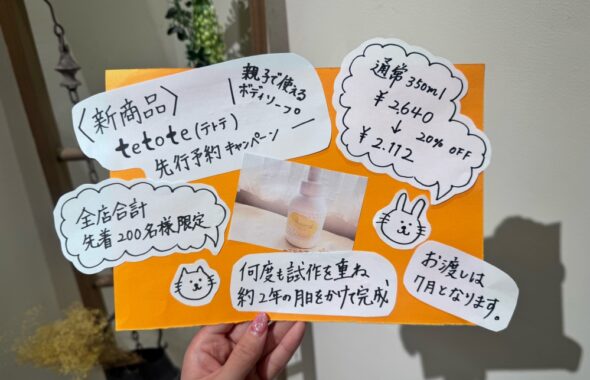 〈新商品〉
親子で使える
ボディソープ
tetote(テトテ)
先行予約キャンペーン
通常350ml
¥2,640
↓ 20%OFF
¥2,112
全店合計
先着200名様限定
何度も試作を重ね
約2年の月日をかけて完成
お渡しは
7月となります。